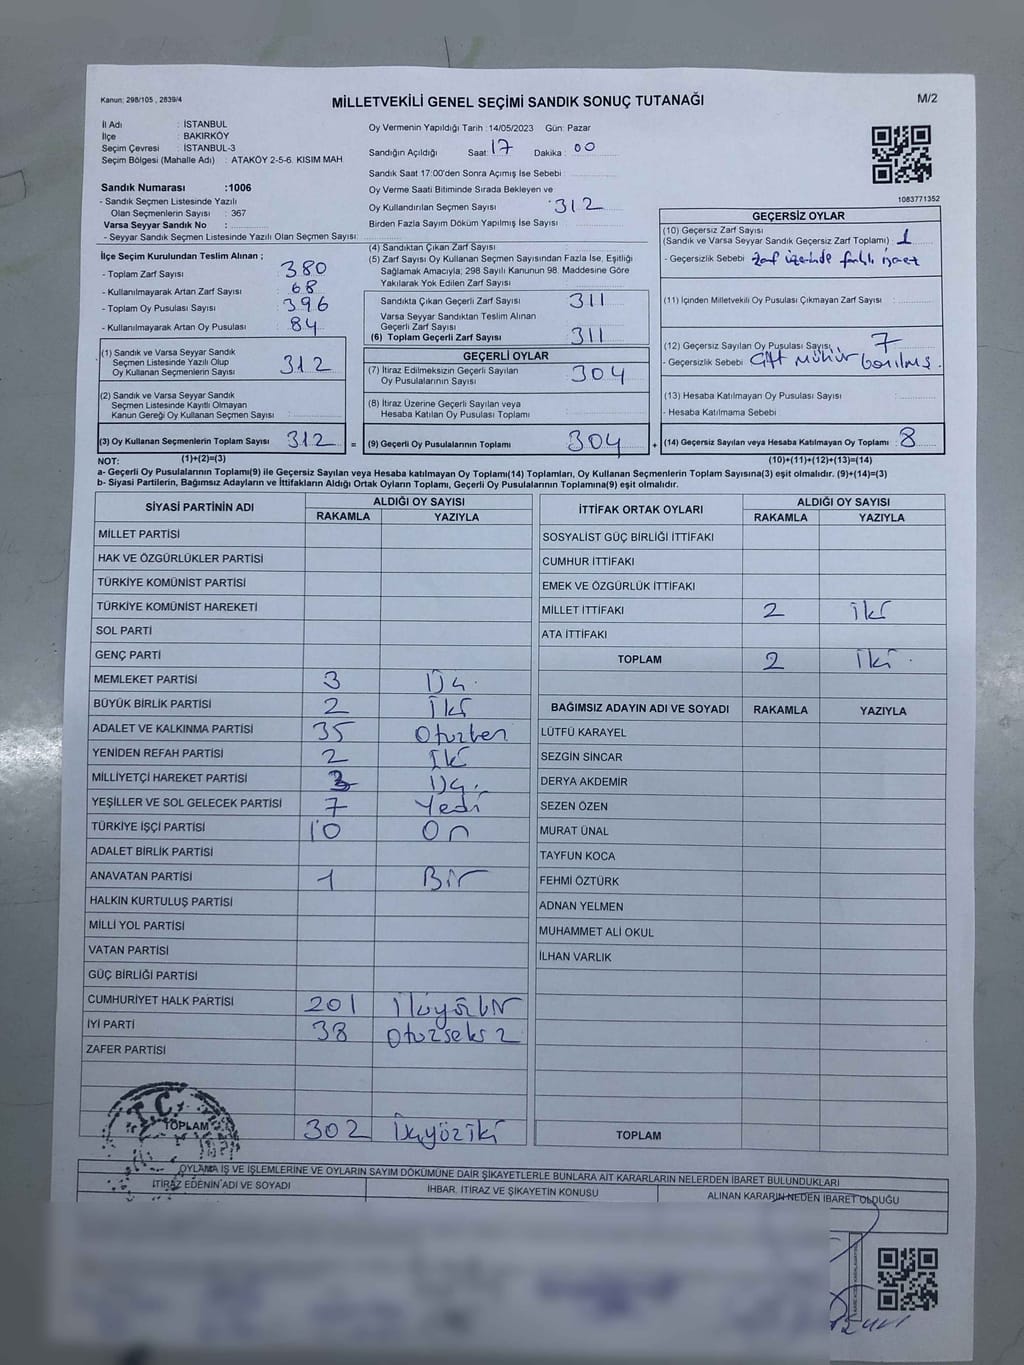 Kanun: 298/105 , 2839/4
MİLLETVEKİLİ GENEL SEÇİMİ SANDIK SONUÇ TUTANAĞI
M/2
İl Adı : İSTANBUL
İlçe : BAKIRKÖY
Seçim Çevresi : İSTANBUL-3
Seçim Bölgesi (Mahalle Adı) : ATAKÖY 2-5-6. KISIM MAH
Sandık Numarası :1006
- Sandık Seçmen Listesinde Yazılı
Olan Seçmenlerin Sayısı : 367
Varsa Seyyar Sandık No :
- Seyyar Sandık Seçmen Listesinde Yazılı Olan Seçmen Sayısı:
Oy Vermenin Yapıldığı Tarih :14/05/2023 Gün: Pazar
Sandığın Açıldığı Saat: 17 Dakika : 00
Sandık Saat 17:00'den Sonra Açımış İse Sebebi :
Oy Verme Saati Bitiminde Sırada Bekleyen ve
Oy Kullandırılan Seçmen Sayısı : 312
Birden Fazla Sayım Döküm Yapılmış İse Sayısı :
1083771352
İlçe Seçim Kurulundan Teslim Alınan ;
- Toplam Zarf Sayısı : 380
- Kullanılmayarak Artan Zarf Sayısı : 68
- Toplam Oy Pusulası Sayısı : 396
- Kullanılmayarak Artan Oy Pusulası : 84
(1) Sandık ve Varsa Seyyar Sandık
Seçmen Listesinde Yazılı Olup
Oy Kullanan Seçmenlerin Sayısı : 312
(2) Sandık ve Varsa Seyyar Sandık
Seçmen Listesinde Kayıtlı Olmayan
Kanun Gereği Oy Kullanan Seçmen Sayısı :
(3) Oy Kullanan Seçmenlerin Toplam Sayısı : 312
(1)+(2)=(3)
(4) Sandıktan Çıkan Zarf Sayısı :
(5) Zarf Sayısı Oy Kullanan Seçmen Sayısından Fazla İse, Eşitliği
Sağlamak Amacıyla; 298 Sayılı Kanunun 98. Maddesine Göre
Yakılarak Yok Edilen Zarf Sayısı :
Sandıkta Çıkan Geçerli Zarf Sayısı : 311
Varsa Seyyar Sandıktan Teslim Alınan
Geçerli Zarf Sayısı
(6) Toplam Geçerli Zarf Sayısı : 311
GEÇERLİ OYLAR
(7) İtiraz Edilmeksizin Geçerli Sayılan
Oy Pusulalarının Sayısı : 304
(8) İtiraz Üzerine Geçerli Sayılan veya
Hesaba Katılan Oy Pusulası Toplamı :
= (9) Geçerli Oy Pusulalarının Toplamı : 304
GEÇERSİZ OYLAR
(10) Geçersiz Zarf Sayısı
(Sandık ve Varsa Seyyar Sandık Geçersiz Zarf Toplamı) : 1
- Geçersizlik Sebebi : Zarf üzerinde farklı işaret
(11) İçinden Milletvekili Oy Pusulası Çıkmayan Zarf Sayısı :
(12) Geçersiz Sayılan Oy Pusulası Sayısı : 7
- Geçersizlik Sebebi : Çift mühür basılmış.
(13) Hesaba Katılmayan Oy Pusulası Sayısı :
- Hesaba Katılmama Sebebi :
+ (14) Geçersiz Sayılan veya Hesaba Katılmayan Oy Toplamı : 8
(10)+(11)+(12)+(13)=(14)
NOT:
a- Geçerli Oy Pusulalarının Toplamı(9) ile Geçersiz Sayılan veya Hesaba katılmayan Oy Toplamı(14) Toplamları, Oy Kullanan Seçmenlerin Toplam Sayısına(3) eşit olmalıdır. (9)+(14)=(3)
b- Siyasi Partilerin, Bağımsız Adayların ve İttifakların Aldığı Ortak Oyların Toplamı, Geçerli Oy Pusulalarının Toplamına(9) eşit olmalıdır.
SİYASİ PARTİNİN ADI ALDIĞI OY SAYISI
RAKAMLA YAZIYLA
MİLLET PARTİSİ
HAK VE ÖZGÜRLÜKLER PARTİSİ
TÜRKİYE KOMÜNİST PARTİSİ
TÜRKİYE KOMÜNİST HAREKETİ
SOL PARTİ
GENÇ PARTİ
MEMLEKET PARTİSİ 3 Üç.
BÜYÜK BİRLİK PARTİSİ 2 İki
ADALET VE KALKINMA PARTİSİ 35 Otuzbeş
YENİDEN REFAH PARTİSİ 2 İki
MİLLİYETÇİ HAREKET PARTİSİ 3 Üç.
YEŞİLLER VE SOL GELECEK PARTİSİ 7 Yedi
TÜRKİYE İŞÇİ PARTİSİ 10 On
ADALET BİRLİK PARTİSİ
ANAVATAN PARTİSİ 1 Bir
HALKIN KURTULUŞ PARTİSİ
MİLLİ YOL PARTİSİ
VATAN PARTİSİ
GÜÇ BİRLİĞİ PARTİSİ
CUMHURİYET HALK PARTİSİ 201 İkiyüzbir
İYİ PARTİ 38 Otuzsekiz
ZAFER PARTİSİ
T.C.
TOPLAM 302 Üçyüziki
İTTİFAK ORTAK OYLARI ALDIĞI OY SAYISI
RAKAMLA YAZIYLA
SOSYALİST GÜÇ BİRLİĞİ İTTİFAKI
CUMHUR İTTİFAKI
EMEK VE ÖZGÜRLÜK İTTİFAKI
MİLLET İTTİFAKI 2 iki
ATA İTTİFAKI
TOPLAM 2 iki.
BAĞIMSIZ ADAYIN ADI VE SOYADI RAKAMLA YAZIYLA
LÜTFÜ KARAYEL
SEZGİN SİNCAR
DERYA AKDEMİR
SEZEN ÖZEN
MURAT ÜNAL
TAYFUN KOCA
FEHMİ ÖZTÜRK
ADNAN YELMEN
MUHAMMET ALİ OKUL
İLHAN VARLIK
TOPLAM
OYLAMA İŞ VE İŞLEMLERİNE VE OYLARIN SAYIM DÖKÜMÜNE DAİR ŞİKAYETLERLE BUNLARA AİT KARARLARIN NELERDEN İBARET BULUNDUKLARI
İTİRAZ EDENİN ADI VE SOYADI İHBAR, İTİRAZ VE ŞİKAYETİN KONUSU ALINAN KARARIN NEDEN İBARET OLDUĞU